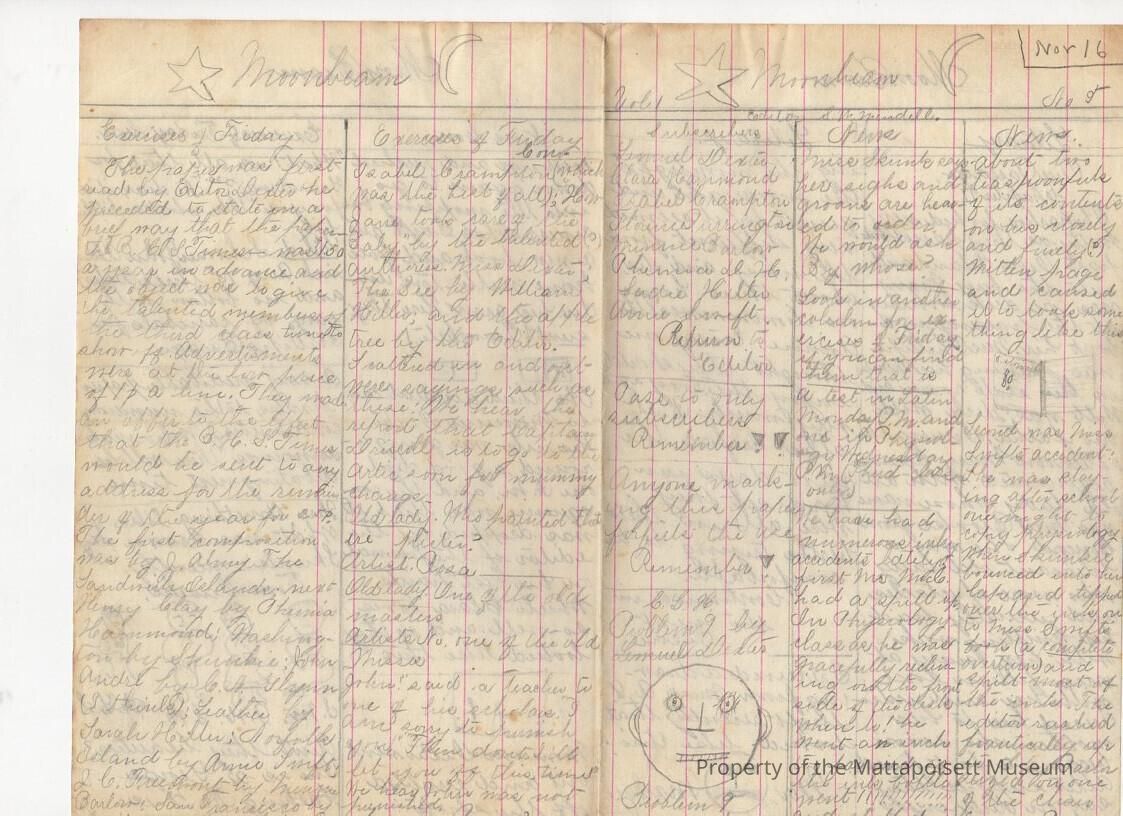 Moonbeam
Exercises of Friday
The paper was first
read by Editor Dexter he
preceded to state in a
brief way that the paper
the B. H. S Times was 1.50
a year in advance and
the object was to give
the talented members of
the third class time to
show it. Advertisements
were at the low price
of 1¢ a line. They made
an offer to the effect
that the B. H. S Times
would be sent to any
address for the remain
der of the year for
The first composition
was by J. Almy The
Sandwich Islands; next
Henry Clay by Phenia
Hammond; Washing-
ton by Skunkie; John
Andre by C. A. Flynn
Leather by
Sarah Hiller; Norfolk
Island by Annie Swift;
J. C. Freemont by Minnie
Barlow; San Francisco by
Exercises of Friday
Con.
Isabel Crampton (which
was the best of all); How
Jane took care of the
Baby by the talented (?)
authoress Miss Dexter;
The Bee by William
Hiller; and the apple
tree by the Editor.
Scattered in and out
were sayings such as
these: We hear the
report that Captain
Driscoll is to go to the
Artic soon for mummy
change.
Old lady. Who painted that
ere picter?
Artist. Rosa
Old lady One of the old
masters
Artist No. one of the old
Misses
John! said a teacher to
one of his scholars. I
am sorry to punish
you. Then dont I'll
let you off this time
We hear John was not
punished.
Moonbeam
Nov 16
Vol. 1
No 5
editor S. W. Mendell.
Subscribers
Lemuel Dexter
Clara Hammond
Isabel Crampton
Florence Purrington
Minnie Barlow
Phenica d H.
Sadie Hiller
Annie Swift
Return to
Editor
Pass to only
subscribers
Remember
Anyone mark-
ing this paper
forfeits the use
Remember
C. G. H.
Problem 9 by
Lemuel Dexter
Problem 9
News
Miss Skunk says
her sighs and
groans are heav-
ed to order
We would ask
By whose?
Look in another
column for ex
ercises of Friday
if you can find
them that is
A test in Latin
Monday P.M. and
one in Physiol-
ogy Wednesday
P.M. (Third class
only)
We have had
numerous inky
accidents lately
first Mr. McC.
had a spill up
In Physiology
class as he was
gracefully reclin
ing on the front
side of the desk
when lo! he
went an inch
the ink bottle
went !!!!!
News.
about two
teaspoonfuls
of its contents
on his closely
and finely (?)
written page
and caused
it to look some
thing like this
80
Second was Miss
Swift's accident:
She was stay-
ing after school
one night to
copy Physiology
when Skunkie
bounced into her
lap and tipped
over the ink on
to Miss Swift's
book (a complete
overturn) and
spilt most of
the ink. The
editor rushed
frantically up
of the chair
Property of the Mattapoisett Museum